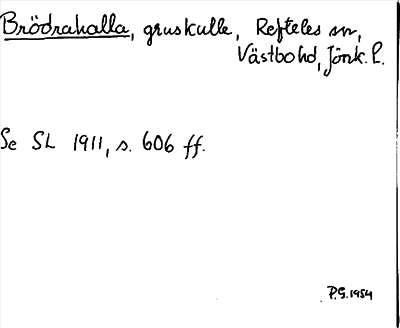 Brödrahalla, gruskulle, Refteles sn,
Västbo hd, Jönk. l.
Se SL 1911, s. 606 ff.
P.G. 1954